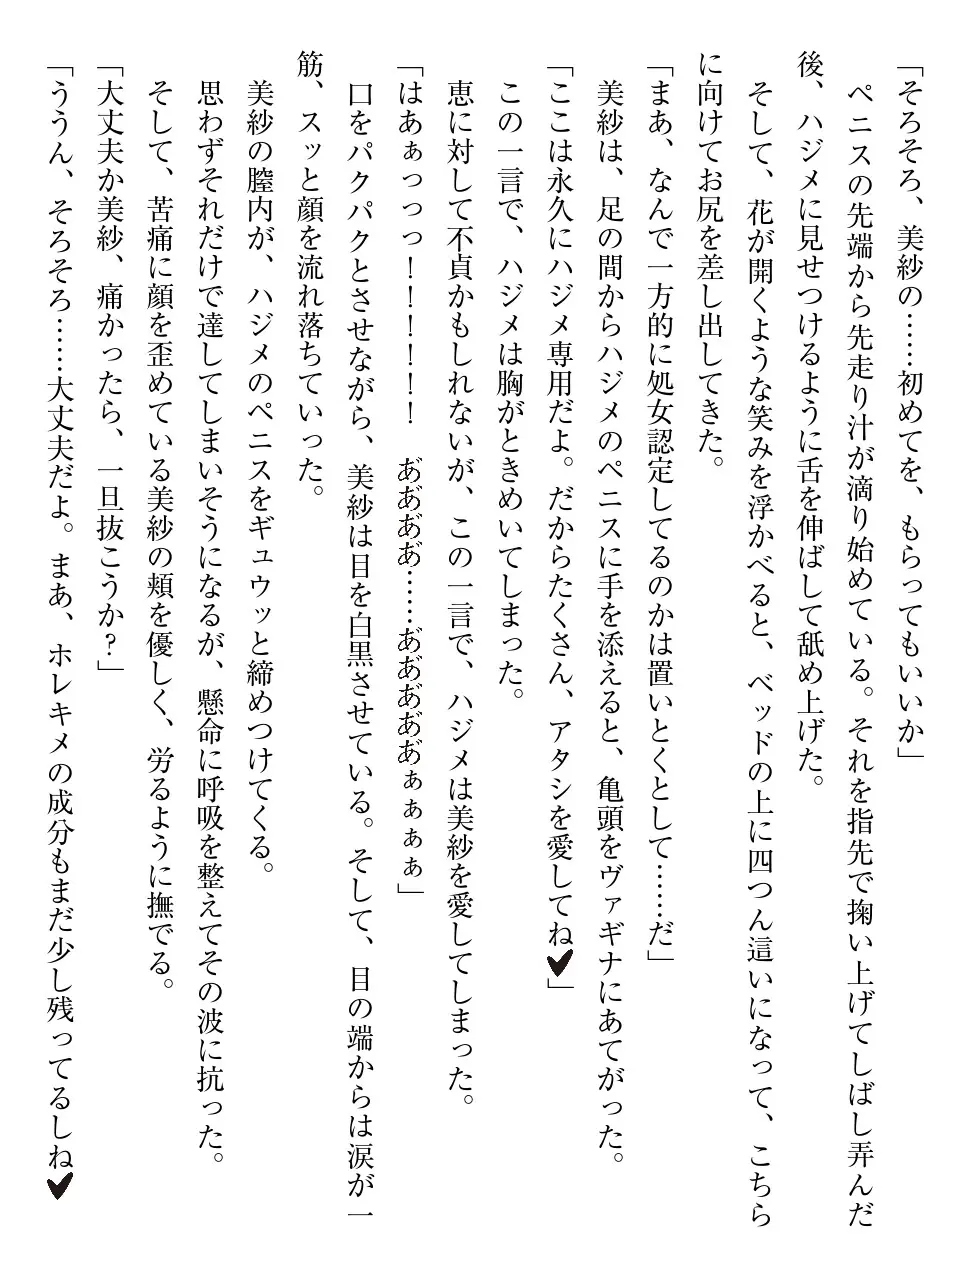 「そろそろ、美紗の……初めてを、もらってもいいか」
　ペニスの先端から先走り汁が滴り始めている。それを指先で掬い上げてしばし弄んだ
後、ハジメに見せつけるように舌を伸ばして舐め上げた。
　そして、花が開くような笑みを浮かべると、ベッドの上に四つん這いになって、こちら
に向けてお尻を差し出してきた。
「まあ、なんで一方的に処女認定してるのかは置いとくとして……だ」
　美紗は、足の間からハジメのペニスに手を添えると、亀頭をヴァギナにあてがった。
「ここは永久にハジメ専用だよ。だからたくさん、アタシを愛してね♥」
　この一言で、ハジメは胸がときめいてしまった。
　恵に対して不貞かもしれないが、この一言で、ハジメは美紗を愛してしまった。
「はあぁっっっ！！！！！！　あ゛あ゛あ゛あ゛……あ゛あ゛あ゛あ゛あ゛ぁぁぁぁ」
　口をパクパクとさせながら、美紗は目を白黒させている。そして、目の端からは涙が一
筋、スッと顔を流れ落ちていった。
　美紗の膣内が、ハジメのペニスをギュウッと締めつけてくる。
　思わずそれだけで達してしまいそうになるが、懸命に呼吸を整えてその波に抗った。
　そして、苦痛に顔を歪めている美紗の頬を優しく、労るように撫でる。
「大丈夫か美紗、痛かったら、一旦抜こうか？」
「ううん、そろそろ……大丈夫だよ。まあ、ホレキメの成分もまだ少し残ってるしね♥